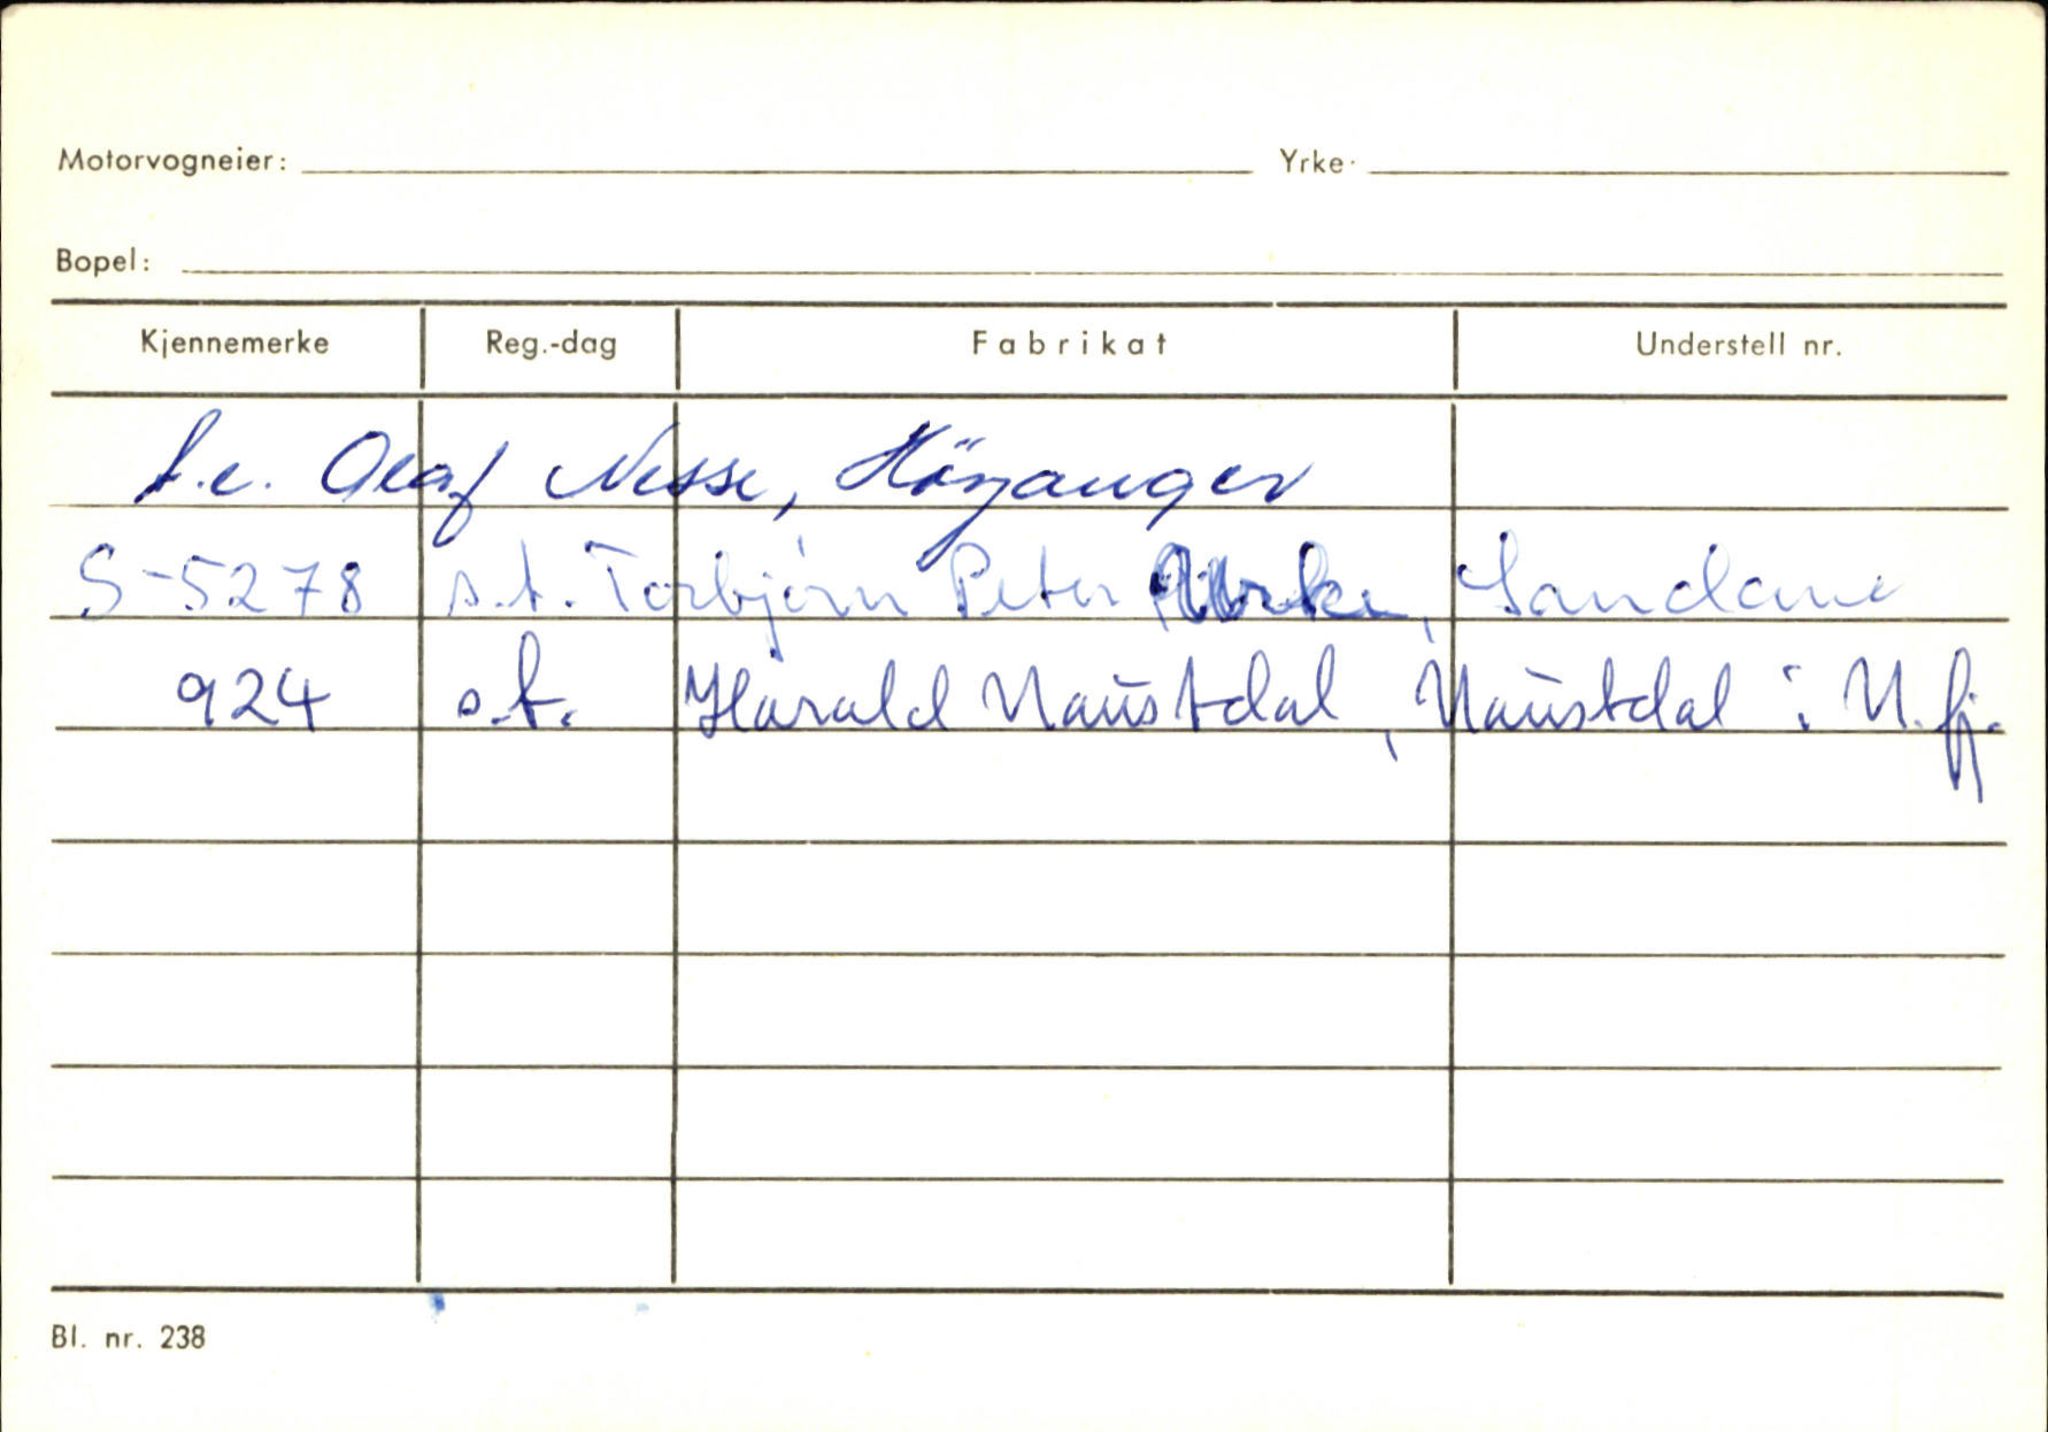 Motorvogneier: Yrke
Bopel:
Kjennemerke Reg.-dag Fabrikat Understell nr.
f.e. Olaf Nesse, Höyanger
S-5278 s.t. Torbjørn Peter , Sandane
924 s.t. Harald Naustdal, Naustdal i N.fj.
Bl. nr. 238